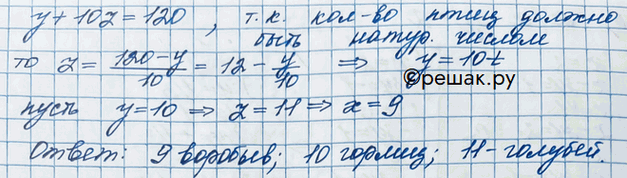 y + 10z = 120, т.к. кол-во птиц должно
быть натур. числом
то z = \frac{120-y}{10} = 12 - \frac{y}{10} ⇒ y = 10t
©решак.ру
пусть y = 10 ⇒ z = 11 ⇒ x = 9
Ответ: 9 воробьев; 10 горлиц; 11 - голубей.